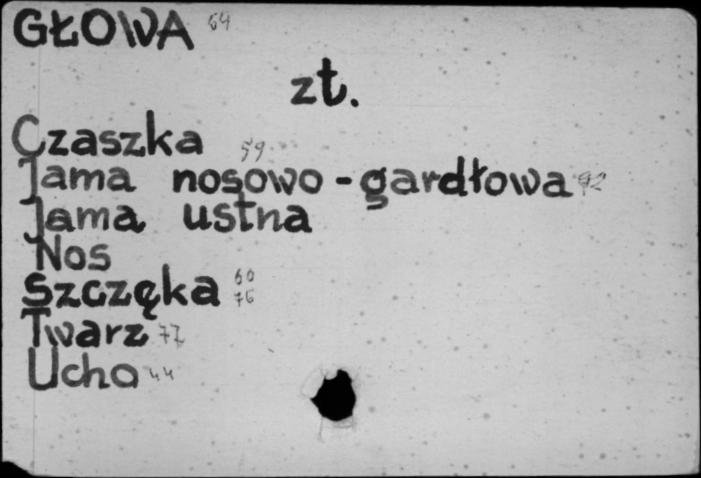 GŁOWA 64
zt.
Czaszka 59
Jama nosowo-gardłowa 92
Jama ustna
Nos
Szczęka 60 76
Twarz 77
Ucho 44